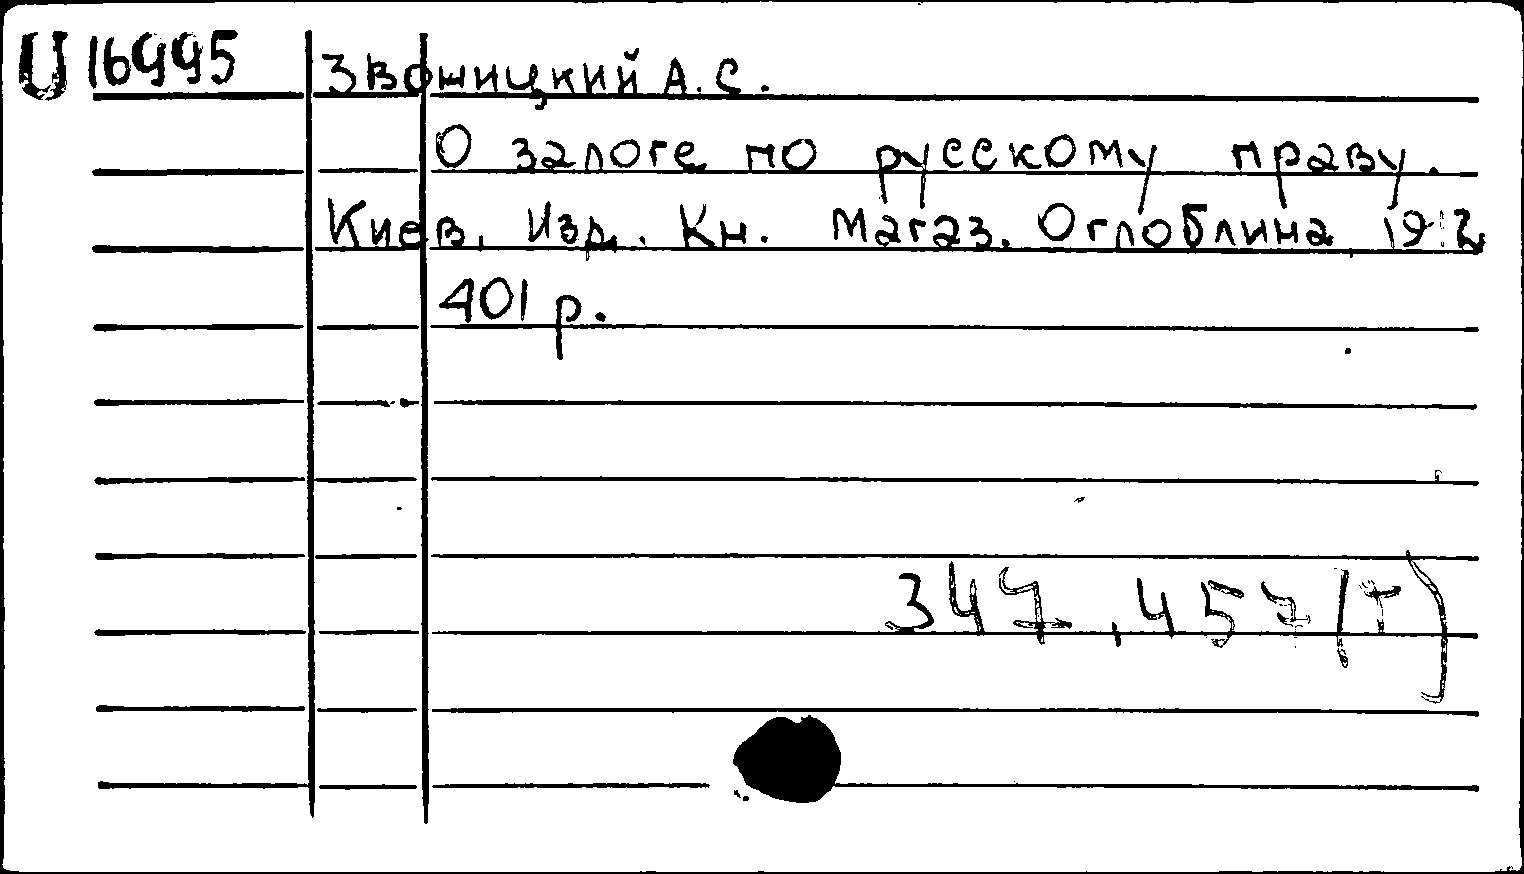 U 16995 Звоницкий А. С.
О залоге по русскому праву.
Киев, Изд. Кн. Магаз. Оглоблина, 1912
401 р.
347.457(т)